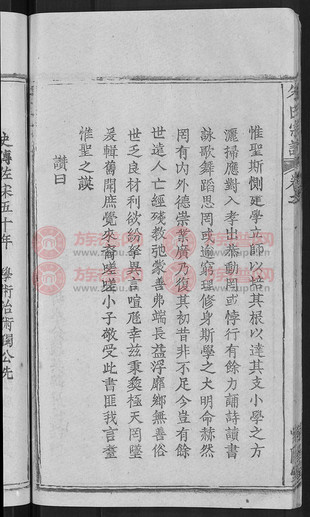 惟聖斯惻建學立師以培其根以達其支小學之方
灑掃應對入孝出恭動罔或悖行有餘力誦詩讀書
詠歌舞蹈思罔或逾窮理修身斯學之大明命赫然
罔有內外德崇業廣乃復其初昔非不足今豈有餘
世遠人亡經殘教弛蒙養弗端長益浮靡鄉無善俗
世乏良材利欲紛拏異言喧豗幸茲秉彝極天罔墜
爰輯舊聞庶覺來裔嗟嗟小子敬受此書匪我言耄
惟聖之謨
讚曰
史專左宋五十年